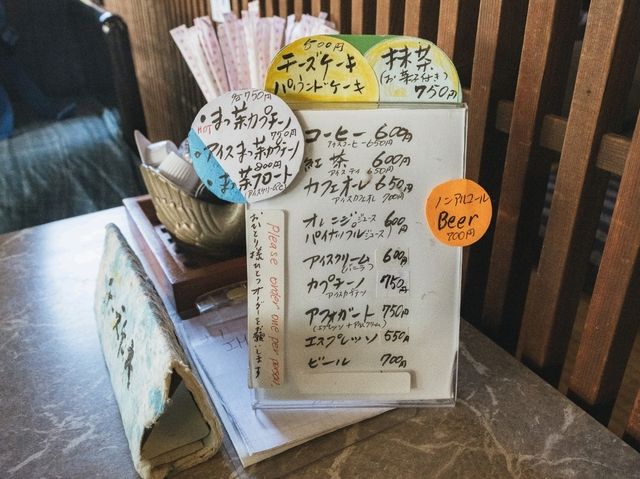 500円
チーズケーキ
パウンドケーキ
抹茶
(お菓子付き)
750円
各750円
・HOT まっ茶カプチーノ
750円
・アイスまっ茶カプチーノ
800円
・お茶フロート
(アイスクリーム)
コーヒー 600円
アイスコーヒー 650円
紅茶 600円
アイスティ 650円
カフェオーレ 650円
アイスカフェオレ 700円
オレンジジュース 600円
パイナップルジュース
アイスクリーム 600円
(バニラ)
カプチーノ 750円
アイスカプチーノ
アフォガート 750円
(エスプレッソ+アイスクリーム)
エスプレッソ 550円
ビール 700円
ノンアルコール
Beer
700円
Please order one per person.
おひとり様ひとつオーダーをお願いします